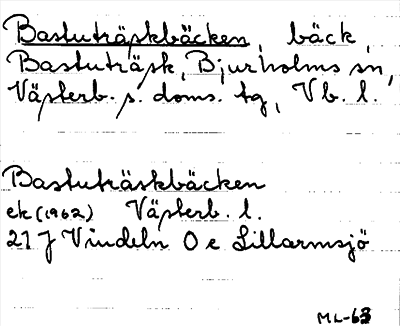 Bastuträskbäcken, bäck,
Bastuträsk, Bjurholms sn,
Västerb. s. doms. tg, Vb. l.
Bastuträskbäcken
ek (1962) Västerb. l.
21 J Vindeln O e Lillarmsjö
ML-63